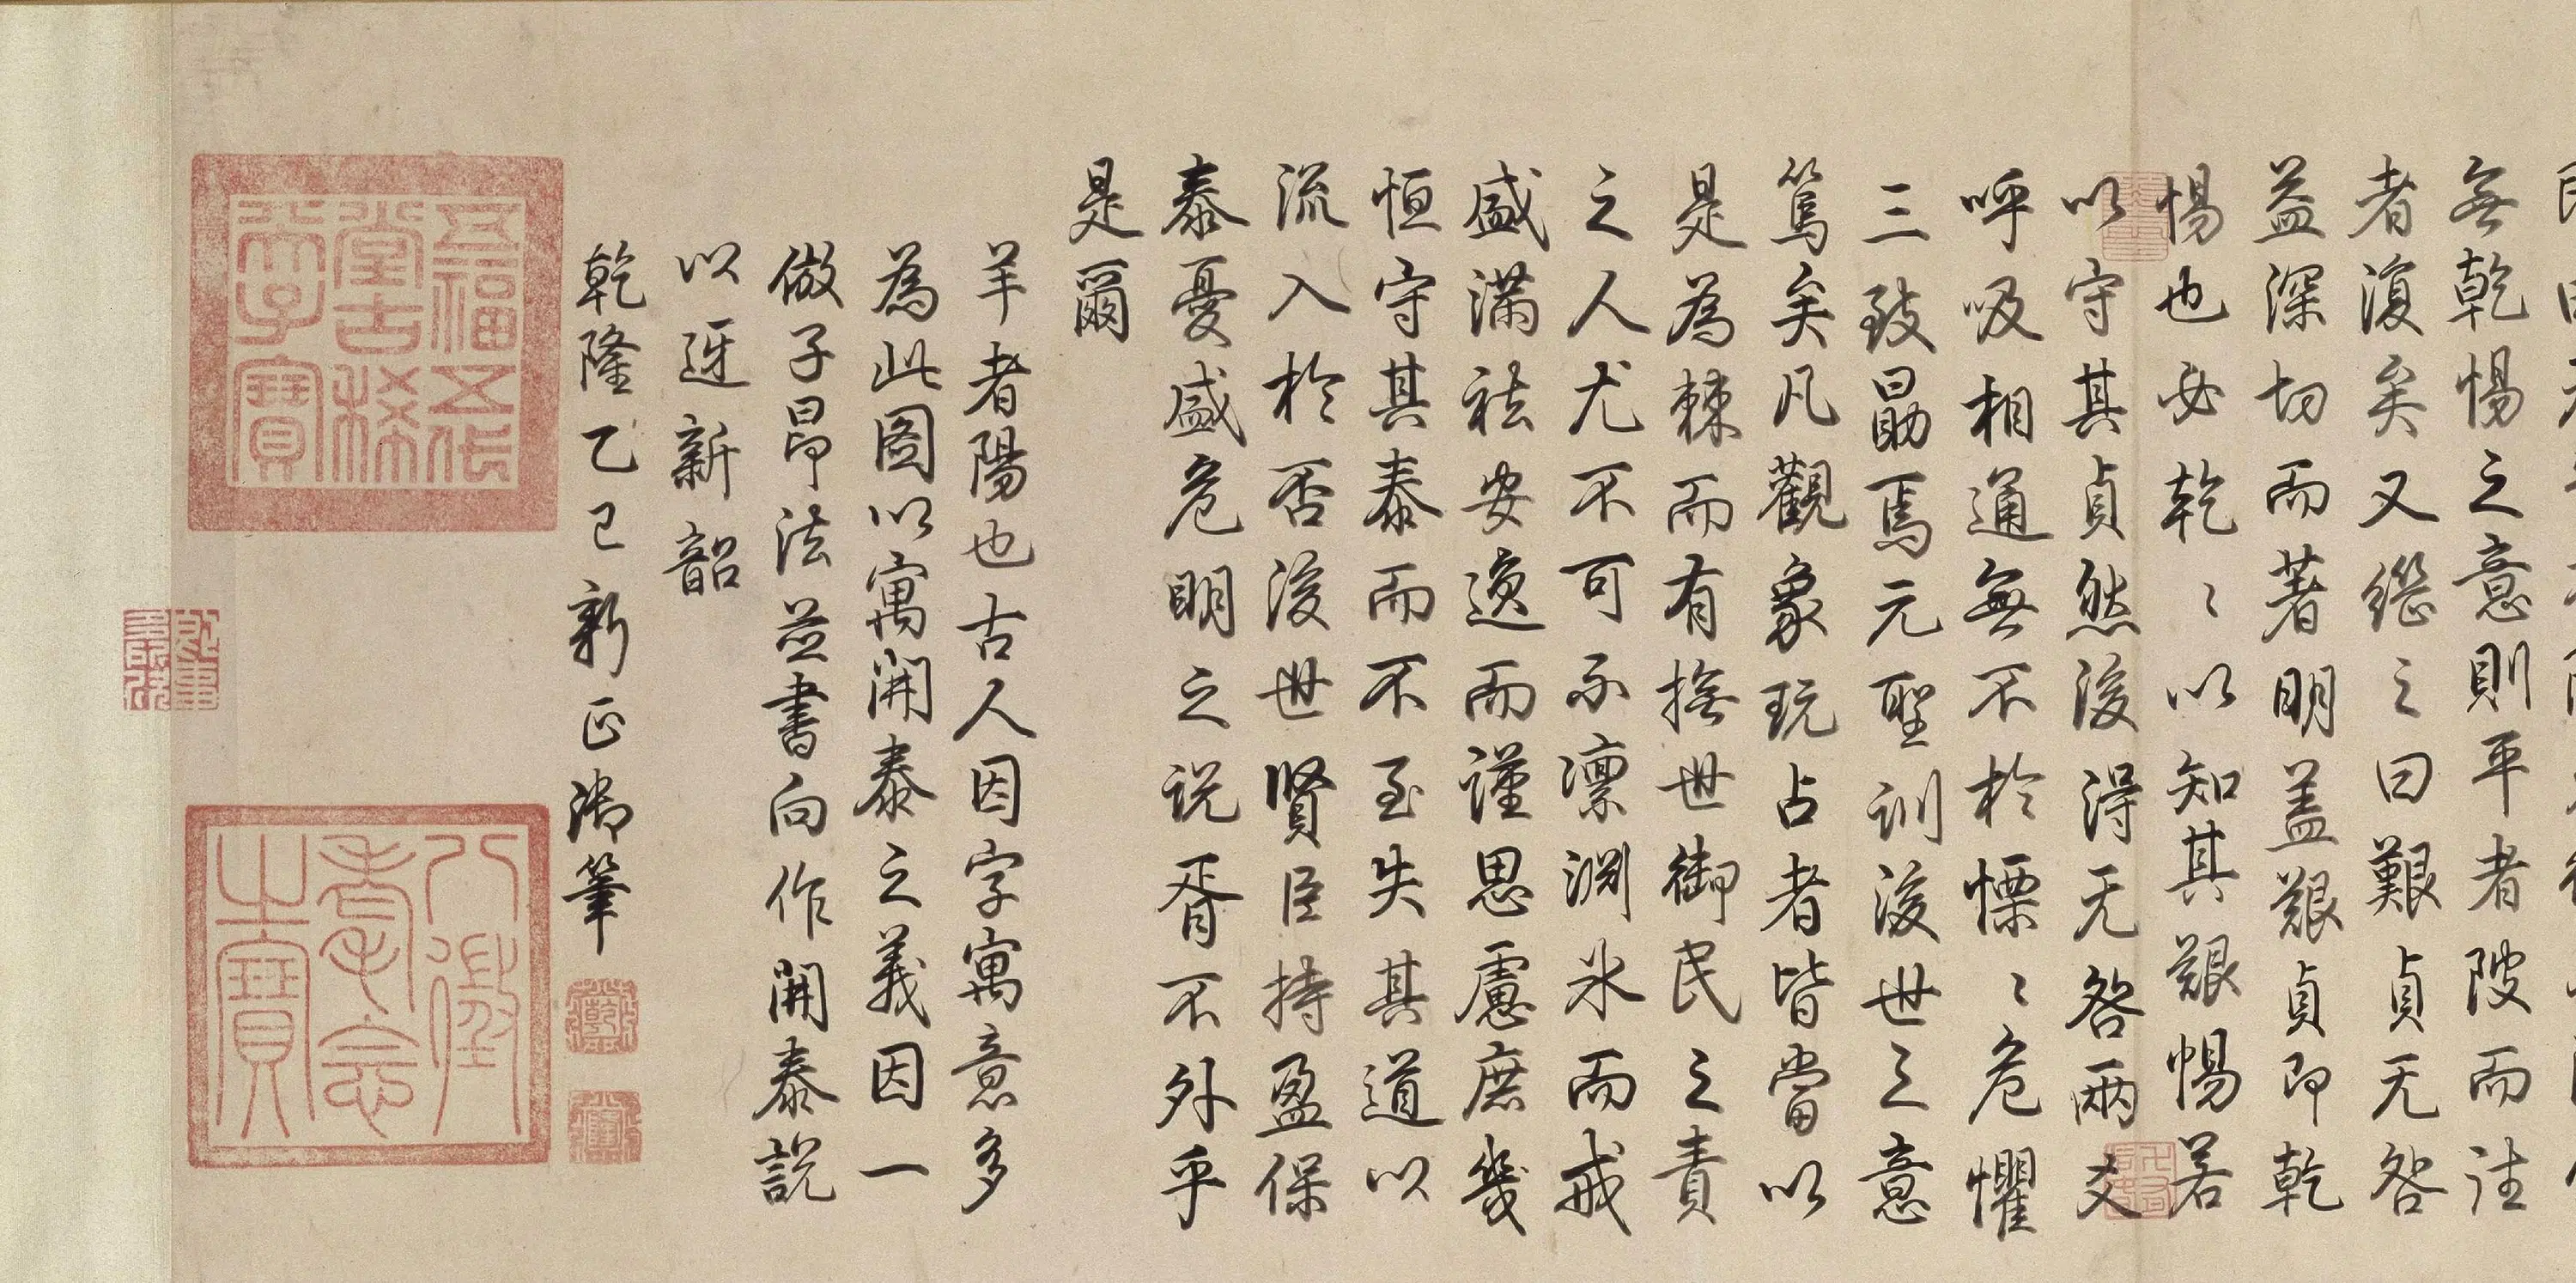 無乾惕之意則平者陂而往
者復矣又繼之曰艱貞无咎
益深切而著明蓋艱貞即乾
惕也必乾〻以知其艱惕若
以守其貞然後得无咎兩爻
呼吸相通無不於慄〻危懼
三致勗焉元聖訓後世之意
篤矣凡觀象玩占者皆當以
是為棘而有撫世御民之責
之人尤不可不凜淵冰而戒
盛滿祛安逸而謹思慮庶幾
恒守其泰而不至失其道以
流入於否後世賢臣持盈保
泰憂盛危明之説胥不外乎
是爾
羊者陽也古人因字寓意多
為此圖以寓開泰之義因一
倣子昂法並書向作開泰說
以迓新韶
乾隆乙巳新正御筆
五福五代
堂古稀
天子寶
八徵
耄念
之寶